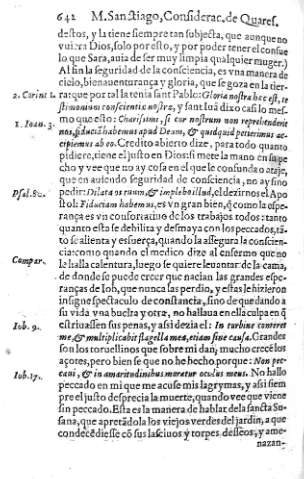 642 M. Sanctiago, Considerac. de Quares.
destos, y la tiene siempre tan subjecta, que aunque no
vuiera Dios, solo por esto, y por poder tener el consue
lo que Sara, auia de ser muy limpia qualquier muger.)
Al fin la seguridad de la consciencia, es vna manera de
cielo, bienauenturança y gloria, que se goza en la tier-
2. Corint. 1.
ra, que por tal la tenia sant Pablo: Gloria nostra hæc est, te
stimonium conscientiæ nostræ, y sant Iuã dixo casi lo mes-
1. Ioan. 3.
mo que esto: Charissimi, si cor nostrum non reprehenderit
nos, fiduciã habemus apud Deum, & quidquid petierimus ac-
cipiemus ab eo. Credito abierto dize, para todo quanto
pidiere, tiene el justo en Dios: si mete la mano en su pe
cho y vee que no ay cosa en el que le confunda o ataje,
que en auiendo seguridad de consciencia, no ay sino
Psal. 80.
pedir: Dilata os tuum, & implebo illud, el dezirnos el Apo
stol: Fiduciam habemus, es vn gran bien, q̃ como la espe-
rança es vn confortatiuo de los trabajos todos: tanto
quanto esta se debilita y desmaya con los peccados, tã-
to se alienta y esfuerça, quando la assegura la conscien-
Compar.
cia: como quando el medico dize al enfermo que no
le halla calentura, luego se quiere leuantar de la cama,
de donde se puede creer que nacian las grandes espe-
ranças de Iob, que nunca las perdio, y estas le hizieron
insigne spectaculo de constancia, sino de que dando a
su vida vna buelta y otra, no hallaua en ella culpa en q̃
Iob. 9.
estriuassen sus penas, y assi dezia el: In turbine conteret
me, & multiplicabit flagella mea, etiam sine causa. Grandes
son los toruellinos que sobre mi dan, mucho crece los
açotes, pero bien se que no he hecho porque: Non pec-
Iob. 17.
caui, & in amaritudinibus moratur oculus meus. No hallo
peccado en mi que me acuse mis lagrymas, y assi siem
pre el justo desprecia la muerte, quando vee que viene
sin peccado. Esta es la manera de hablar de la sancta Su-
sana, que apretãdola los viejos verdes del jardin, a que
condecẽdiesse cõ sus lasciuos y torpes desseos, y ame-
nazan-